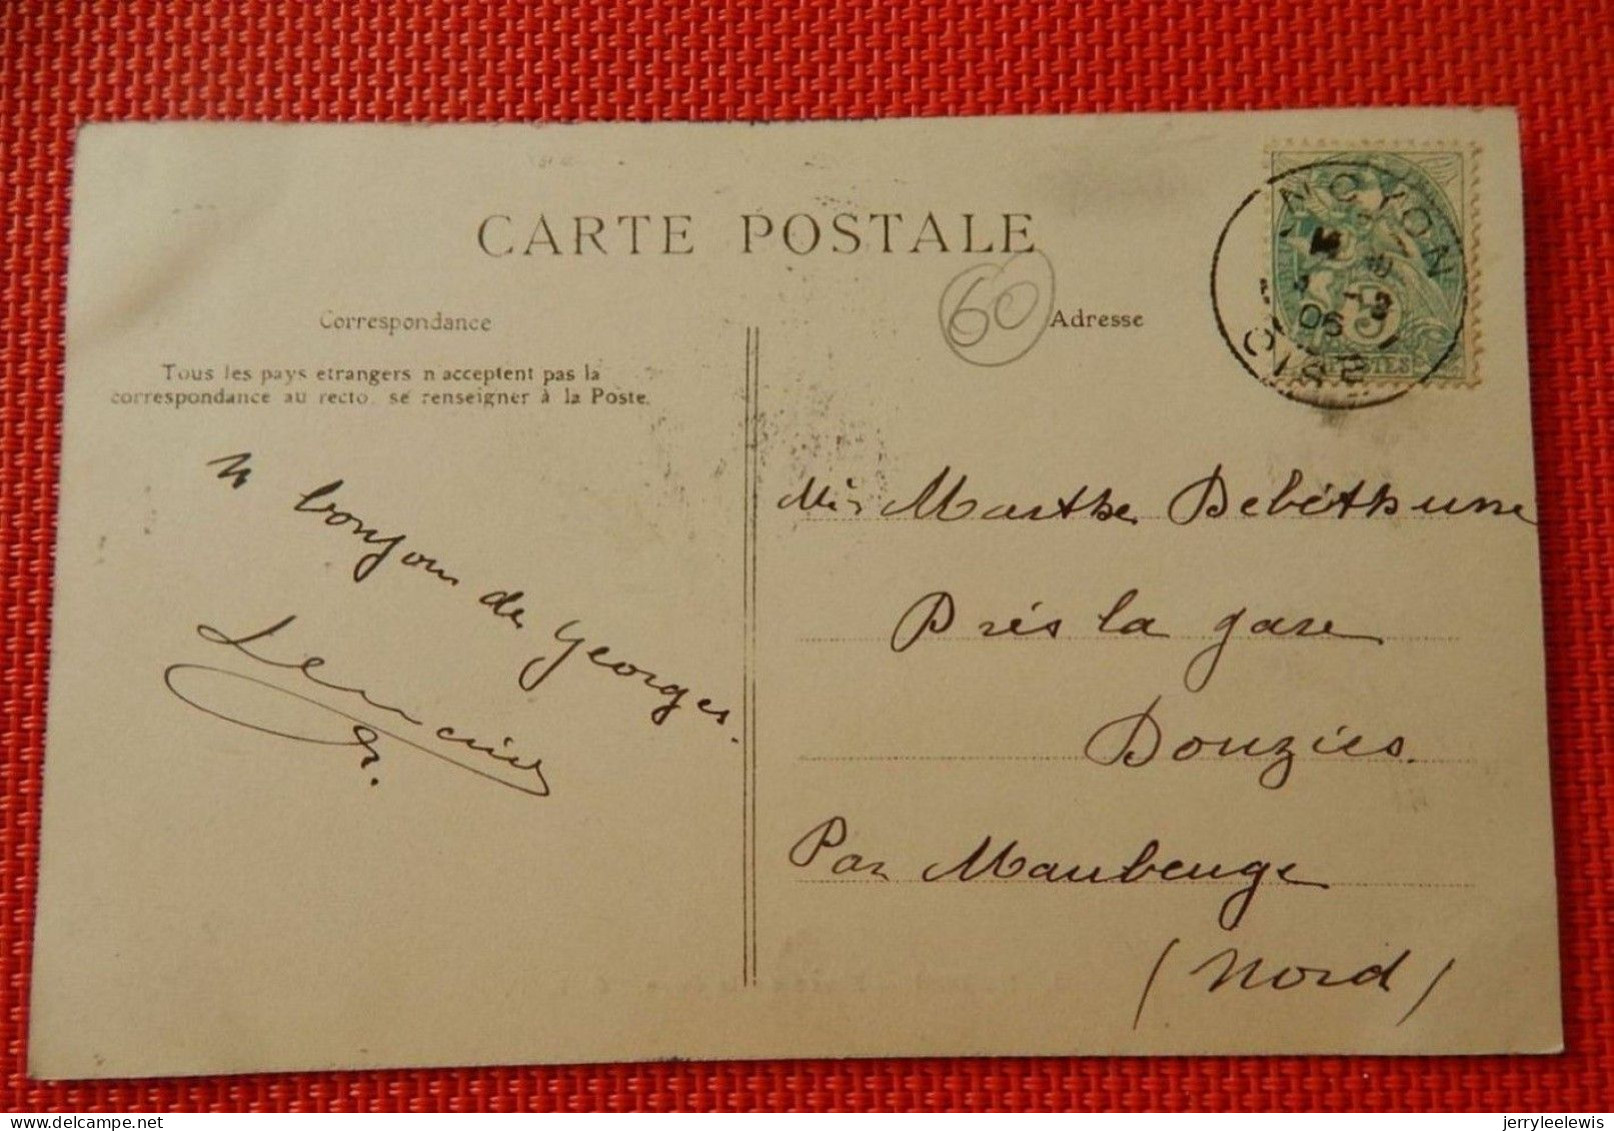 CARTE POSTALE
60
Correspondance
Adresse
Tous les pays etrangers n acceptent pas la
correspondance au recto, se renseigner à la Poste.
NOYON
06
OISE
5
POSTES
bonjour de Georges.
Marthe Debéthune
Près la gare
Douzies.
Par Maubeuge
(Nord)
jerryleelewis